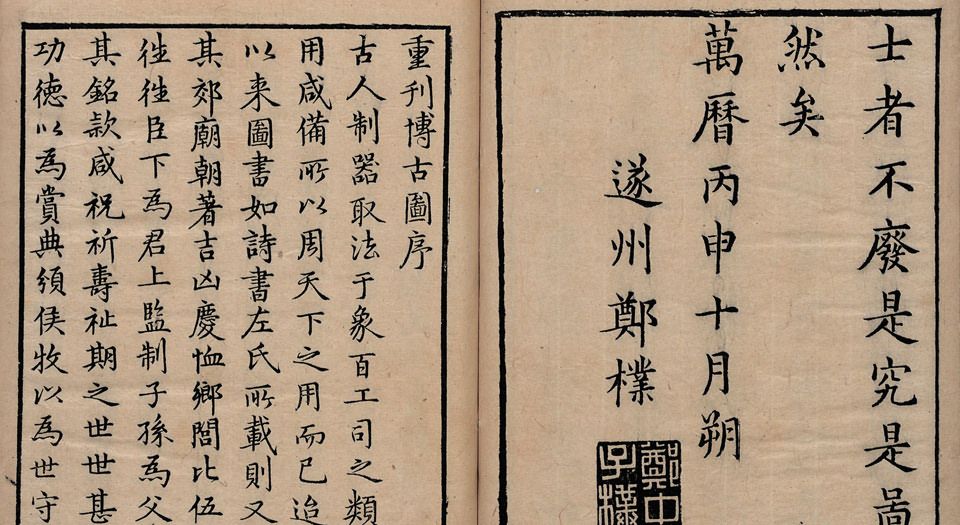 士者不廢是究是啚
然矣
萬曆丙申十月朔
遂州鄭樸
鄭中
子樸
重刊博古圖序
古人制器取法于象百工司之類
用咸備所以周天下之用而已迨
以来圖書如詩書左氏所載則又
其郊廟朝著吉凶慶恤鄉閭比伍
徃徃臣下為君上監制子孫為父
其銘款咸祝祈壽祉期之世世甚
功德以為賞典須侯牧以為世守